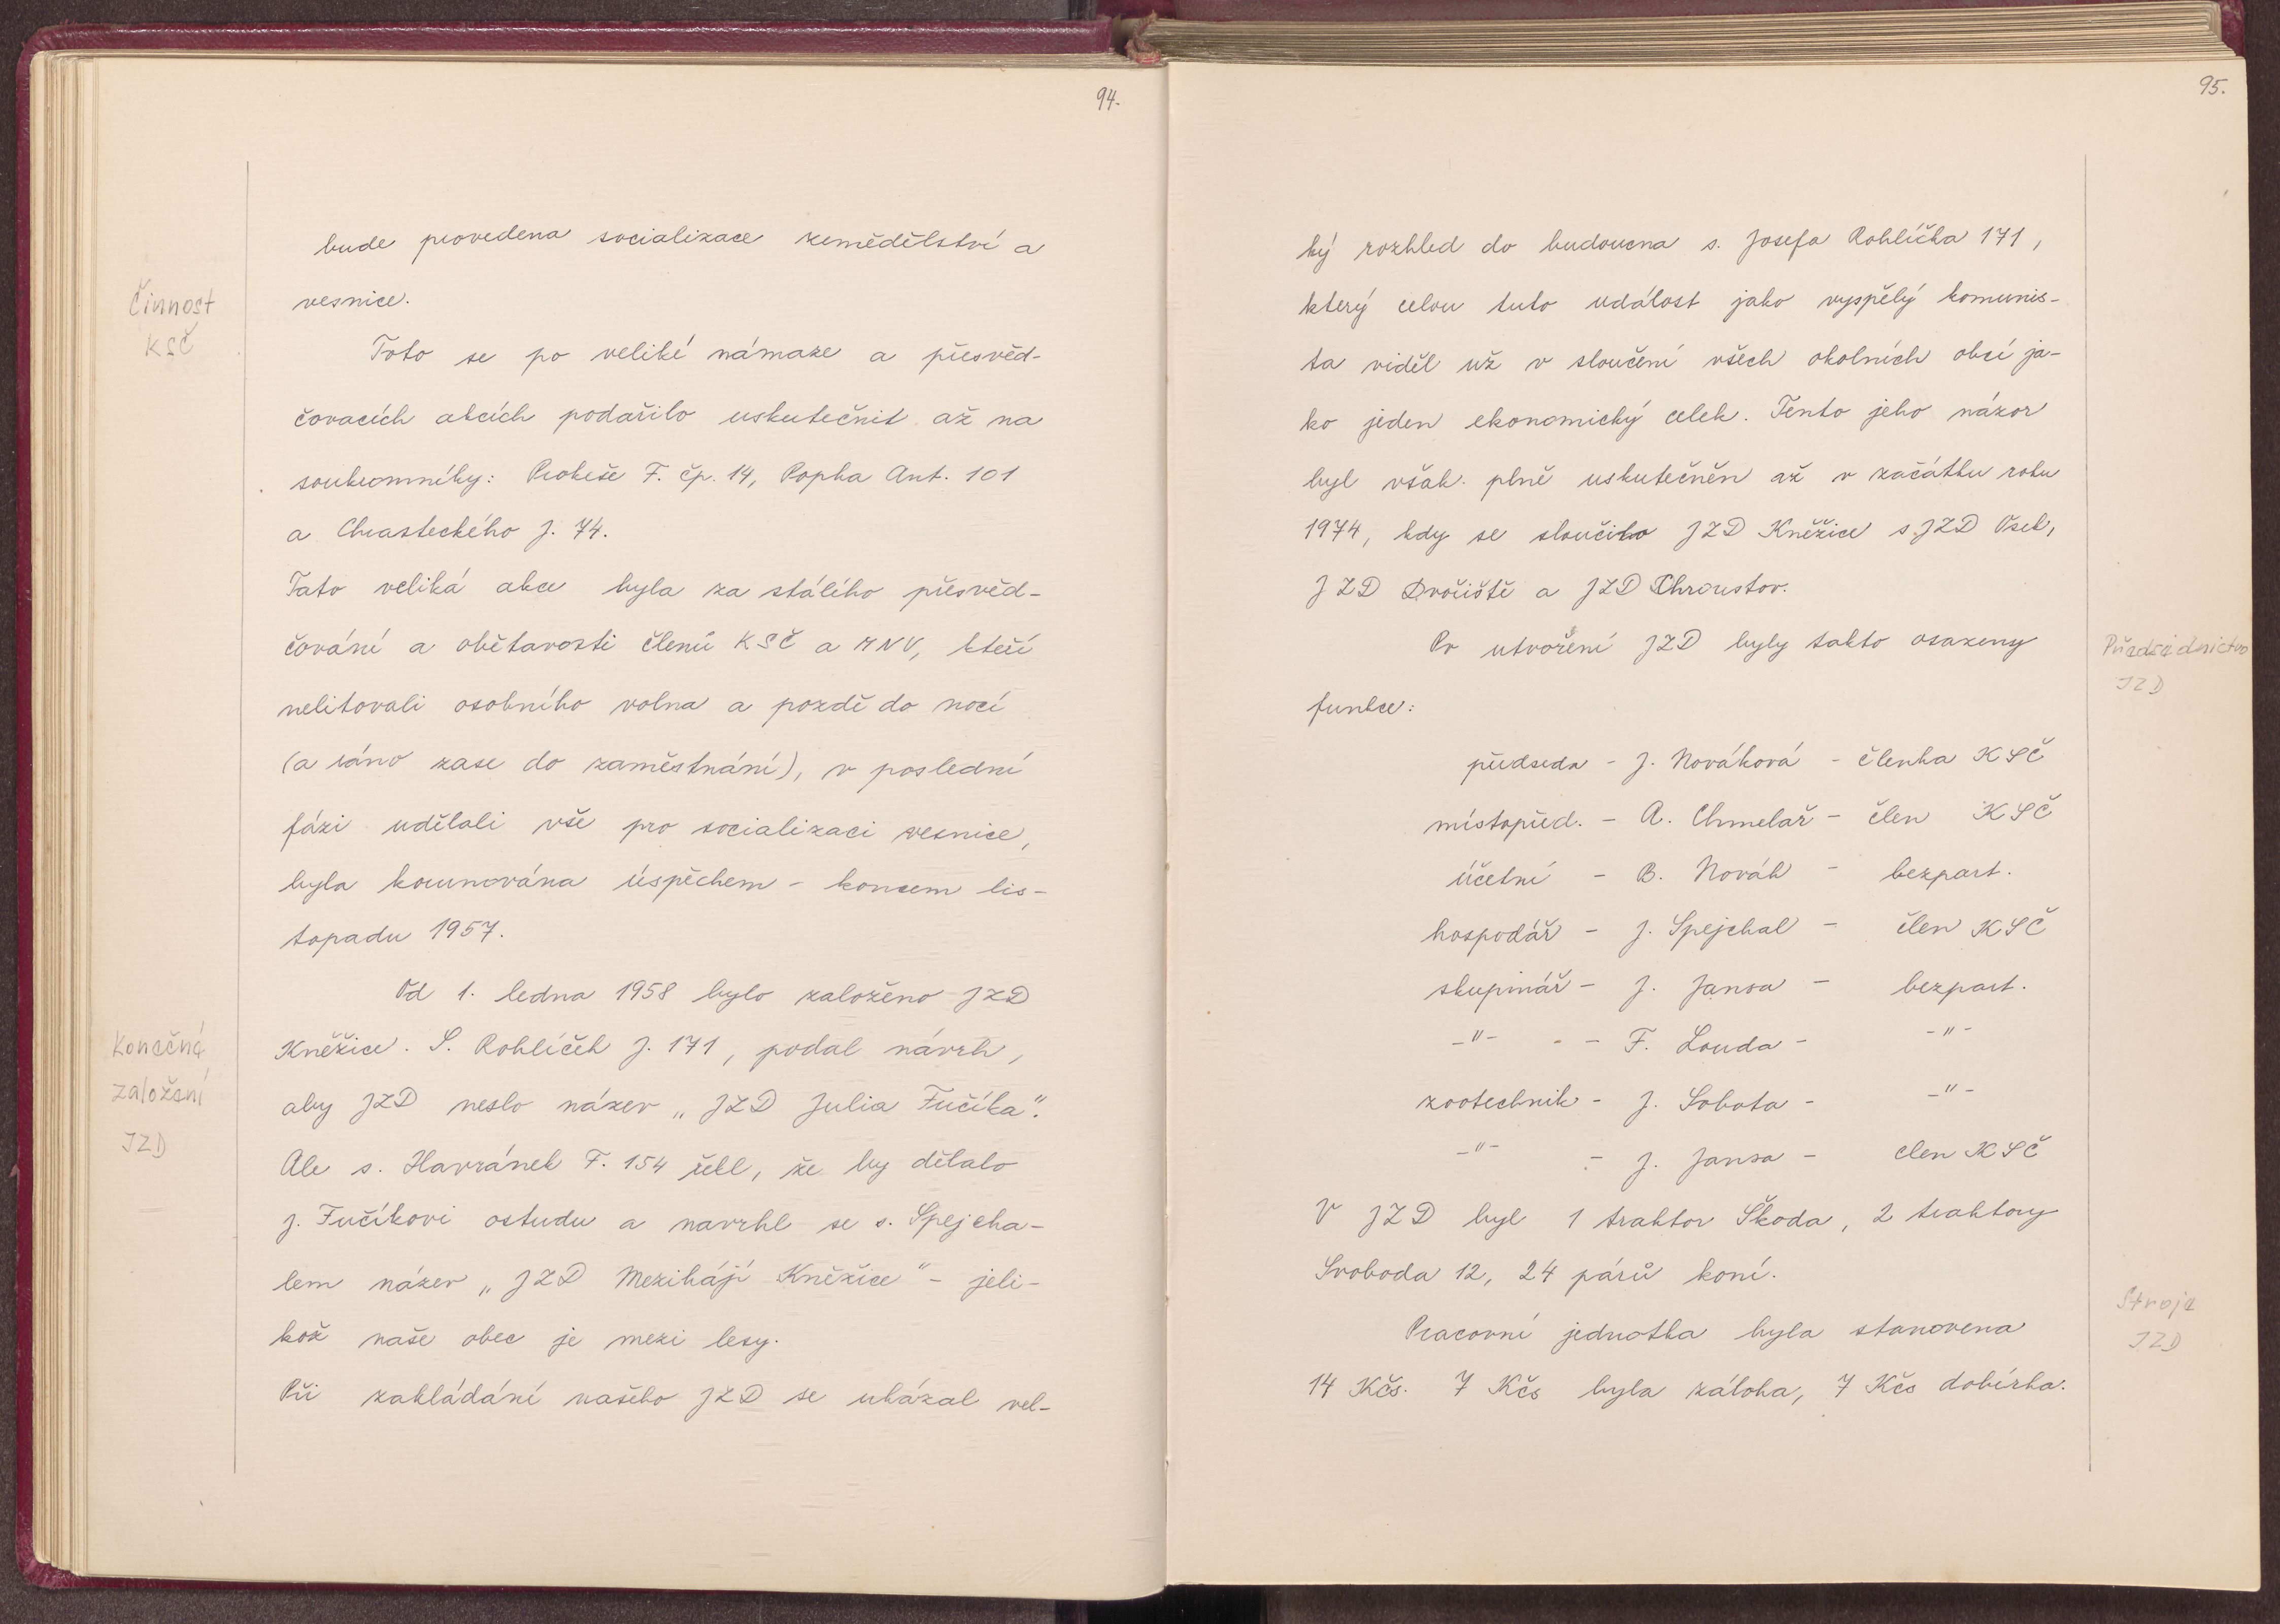 94.
bude provedena socializace zemědělství a
Činnost
KSČ
vesnice.
Toto se po veliké námaze a přesvěd-
čovacích akcích podařilo uskutečnit až na
soukromníky: Prokeše F. čp. 14, Popka Ant. 101
a Chrasteckého J. 74.
Tato veliká akce byla za stálého přesvěd-
čování a obětavosti členů KSČ a MNV, kteří
nelitovali osobního volna a pozdě do nocí
(a ráno zase do zaměstnání), v poslední
fázi udělali vše pro socializaci vesnice,
byla korunována úspěchem - koncem lis-
topadu 1957.
Od 1. ledna 1958 bylo založeno JZD
Konečné
založení
JZD
Kněžice. S. Rohlíček J. 171, podal návrh,
aby JZD neslo název „JZD Julia Fučíka".
Ale s. Havránek F. 154 řekl, že by dělalo
J. Fučíkovi ostudu a navrhl se s. Spejcha-
lem název „JZD Mezihájí Kněžice" - jeli-
kož naše obec je mezi lesy.
Při zakládání našeho JZD se ukázal vel-
95.
ký rozhled do budoucna s. Josefa Rohlíčka 171,
který celou tuto událost jako vyspělý komunis-
ta viděl už v sloučení všech okolních obcí ja-
ko jeden ekonomický celek. Tento jeho názor
byl však plně uskutečněn až v začátku roku
1974, kdy se sloučilo JZD Kněžice s JZD Osek,
JZD Dvořiště a JZD Chroustov.
Po utvoření JZD byly takto osazeny
Předsednictvo
JZD
funkce:
předseda - J. Nováková - členka KSČ
místopřed. - A. Chmelař - člen KSČ
účetní - B. Novák - bezpart.
hospodář - J. Spejchal - člen KSČ
skupinář - J. Jansa - bezpart.
-"- - - F. Louda - -"-
zootechnik - J. Sobota - -"-
-"- - J. Jansa - clen KSČ
V JZD byl 1 traktor Škoda, 2 traktory
Svoboda 12, 24 párů koní.
Stroje
JZD
Pracovní jednotka byla stanovena
14 Kčs. 7 Kčs byla záloha, 7 Kčs dobírka.